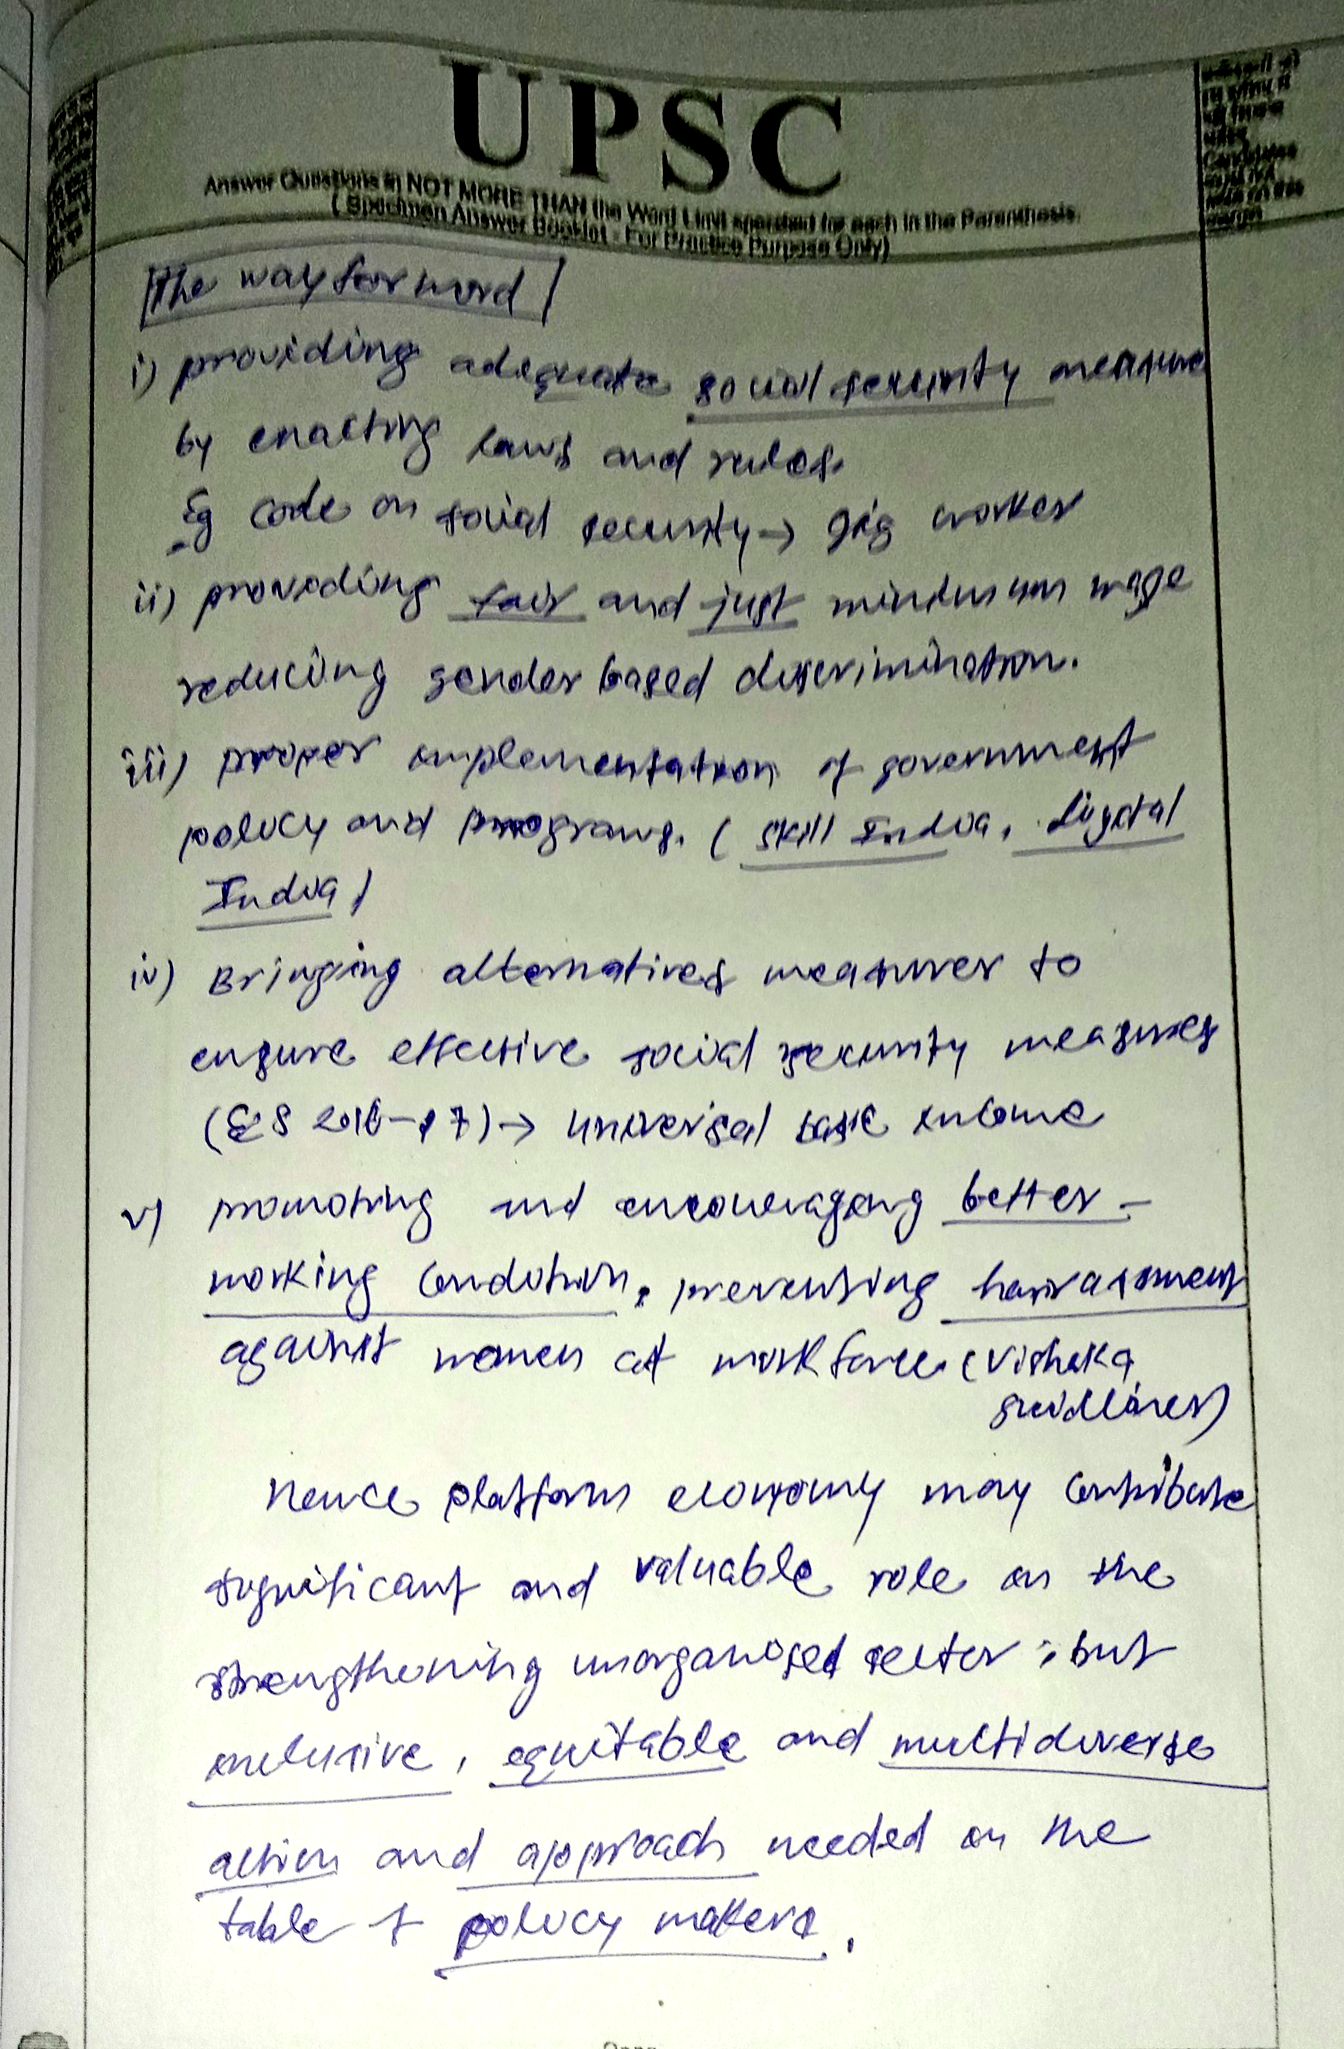 UPSC
Answer Questions in NOT MORE THAN the Word Limit specified for each in the Parenthesis.
( Specimen Answer Booklet - For Practice Purpose Only)
The way forword
i) providing adequate social security measure
by enacting laws and rules.
Eg code on social security → gig worker
ii) providing fair and just minimum wage
reducing gender based discrimination.
iii) proper implementation of government
policy and programs. ( skill India, Digital
India)
iv) Bringing alternatives measures to
ensure effective social security measures
(ES 2016-17) → universal basic income
v) promoting and encouraging better
working condition, preventing harrasment
against women at workforce (Vishaka
guidlines)
Hence platform economy may contribute
significant and valuable role on the
strengthening unorganised sector ; but
inclusive, equitable and multidiverse
action and approach needed on the
table of policy makers.